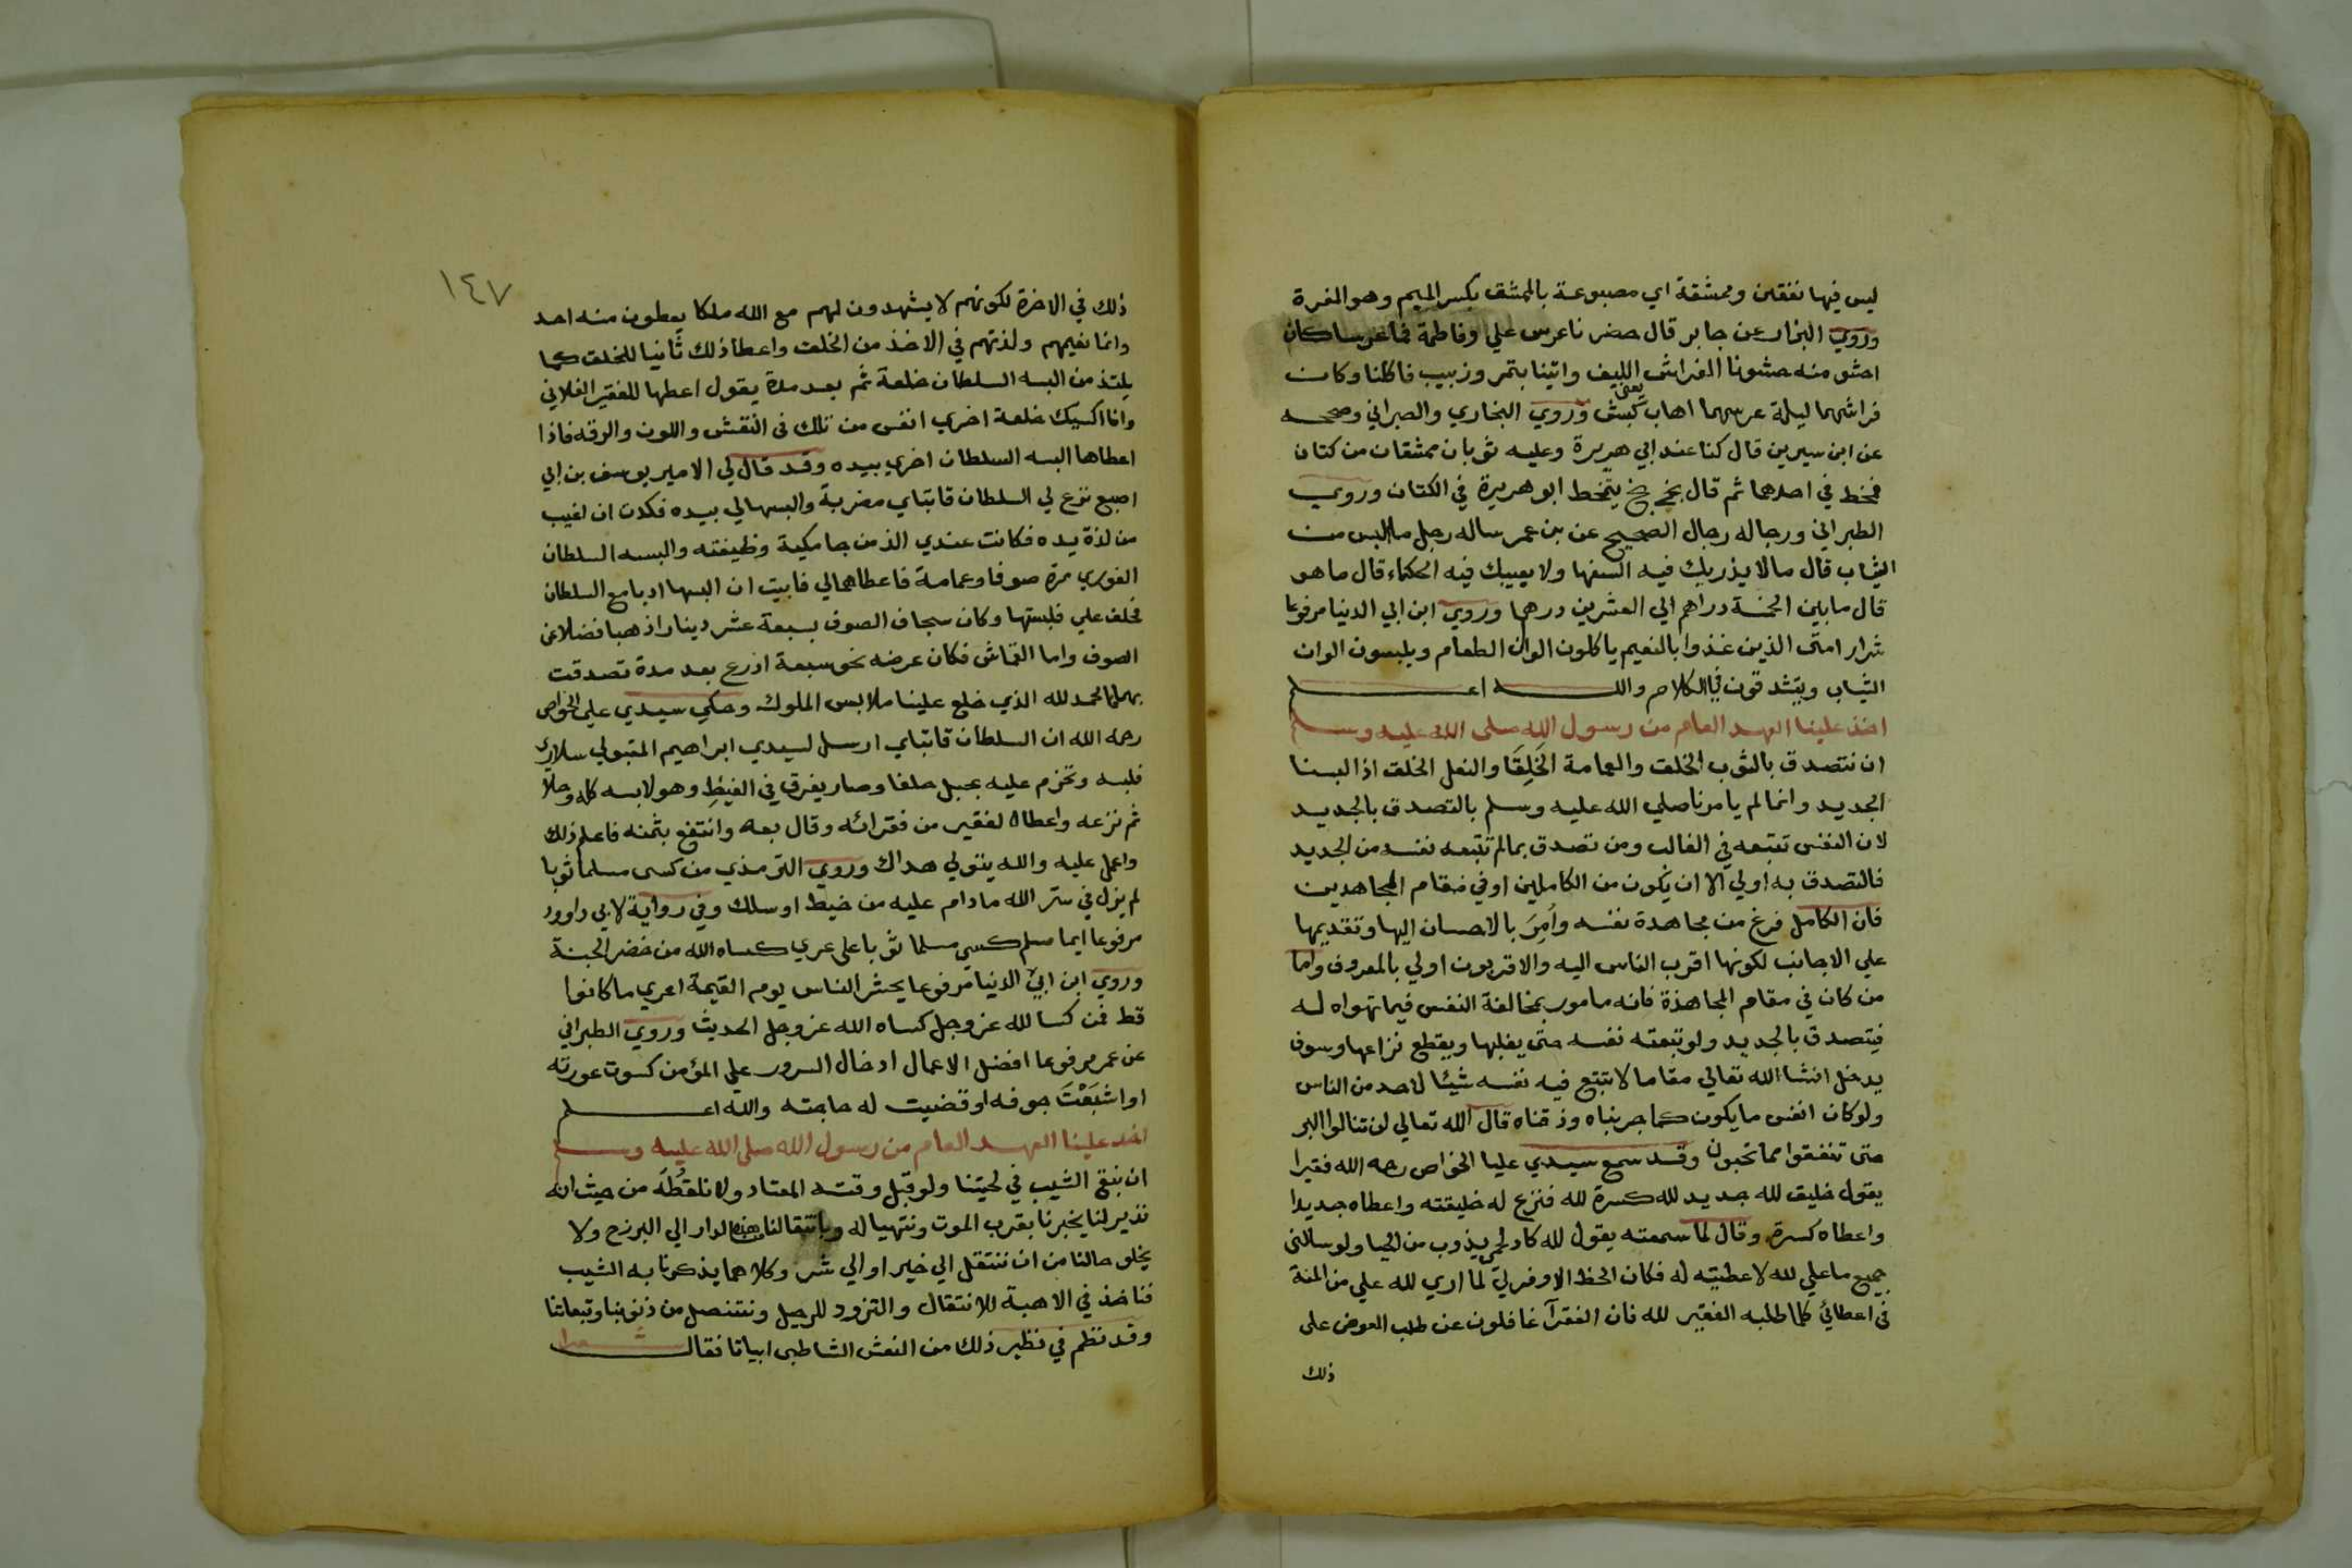 ليس فيها نفقين وممشقة اي مصبوعة بالمشق بكسر الميم وهو المغرة
وروي البزار عن جابر قال حضرنا عرس علي وفاطمة فما عرسا كان
احشو منه حشونا الفراش الليف واتينا بتمر وزبيب فاكلنا وكان
فراشهما ليلة عرسهما اهاب يعنى كبش وروي البخاري والصبراني وصححه
عن ابن سيرين قال كنا عند ابي هريرة وعليه ثوبان ممشقان من كتان
فمخط في احدهما ثم قال بخ بخ يتمخط ابو هريرة في الكتان وروي
الطبراني ورجاله رجال الصحيح عن بن عمر ساله رجل ما البس من
الثياب قال مالا يذريك فيه السفها ولا يعيبك فيه الحكماء قال ما هو
قال ما بين الخمسة دراهم الي العشرين درهما وروي ابن ابي الدنيا مرفوعا
شرار امتى الذين غذوا بالنعيم ياكلون الوان الطعام ويلبسون الوان
الثياب ويتشدقون في الكلام والله اعلم
اخذ علينا العهد العام من رسول الله صلى الله عليه وسلم
ان نتصدق بالثوب الخلق والعمامة الخَلِقَا والنعل الخلق اذا لبسنا
الجديد وانما لم يامرنا صلي الله عليه وسلم بالتصدق بالجديد
لان النفس تتبعه في الغالب ومن تصدق بما لم تتبعه نفسه من الجديد
فالتصدق به اولي الا ان يكون من الكاملين او في مقام المجاهدين
فان الكامل فرغ من مجاهدة نفسه واُمِرَ بالاحسان اليها وتقديمها
علي الاجانب لكونها اقرب الناس اليه والاقربون اولي بالمعروف واما
من كان في مقام المجاهدة فانه مامور بمخالفة النفس فيما تهواه له
فيتصدق بالجديد ولو تبعته نفسه حتى يغلبها ويقطع نزاعها وسوف
يدخل انشا الله تعالي مقاما لا تتبع فيه نفسه شيئا لاحد من الناس
ولو كان انفس ما يكون كما جربناه وذقناه قال الله تعالي لن تنالوا البر
حتى تنفقوا مما تحبون وقد سمع سيدي عليا الخواص رحه الله فقيرا
يقول خليق لله جديد لله كسرة لله فنزع له خليقته واعطاه جديدا
واعطاه كسرة وقال لما سمعته يقول لله كاد لحمي يذوب من الحيا ولو سالنى
جميع ما علي لله لاعطيته له فكان الحظ الاوفر لي لما اري لله علي من المنة
فى اعطائي كلما طلبه الفقير لله فان الفقرآ غافلون عن طلب العوض على
ذلك
١٤٧
ذلك في الاخرة لكونهم لا يشهدون لهم مع الله ملكا يعطون منه احد
وانما نعيمهم ولذتهم في الاخذ من الخلق واعطا ذلك ثانيا للخلق كما
يلتذ من البسه السلطان خلعة ثم بعد مدة يقول اعطها للفقير الفلاني
وانا اكسيك خلعة اخري انفس من تلك فى النقش واللون والرقه فاذا
اعطاها البسه السلطان اخري بيده وقد قال لي الامير يوسف بن ابي
اصبع نزع لي السلطان قايتباي مضربة والبسها لي بيده فكدت ان اغيب
من لذة يده فكانت عندي الذ من جامكية وظيفته والبسه السلطان
الغوري مرة صوفا وعمامة فاعطاهما لي فابيت ان البسها ادبا مع السلطان
فحلف علي فلبستها وكان سجاف الصوف بسبعة عشر دينارا ذهبا فضلا عن
الصوف واما القماش فكان عرضه نحو سبعة اذرع بعد مدة تصدقت
بهما فالحمد لله الذي خلع علينا ملابس الملوك وحكي سيدي علي الخواص
رحمه الله ان السلطان قايتباي ارسل لسيدي ابراهيم المتبولي سلاري
فلبسه وتحزم عليه بحبل حلفا وصار يغرق في الغيْطِ وهو لابسه كله وحلا
ثم نزعه واعطاه لفقير من فقرائه وقال بعه وانتفع بثمنه فاعلم ذلك
واعمل عليه والله يتولي هداك وروي الترمذي من كسى مسلما ثوبا
لم يزل في ستر الله مادام عليه من خيط او سلك وفي رواية لابي داوود
مرفوعا ايما مسلم كسي مسلما ثوبا على عري كساه الله من خضر الجنة
وروي ابن ابي الدنيا مرفوعا يحشر الناس يوم القيمة اعري ما كانوا
قط فمن كسا لله عز وجل كساه الله عز وجل الحديث وروي الطبراني
عن عمر مرفوعا افضل الاعمال ادخال السرور علي المؤمن كسوت عورته
او اشبَعْتَ جوفه او قضيت له حاجته والله اعلم
اخد علينا العهد العام من رسول الله صلى الله عليه وسلم
ان نبقي الشيب في لحيتنا ولو قبل وقته المعتاد ولا نلقُطهُ من حيث انه
نذير لنا يخبرنا بقرب الموت ونتهيا له وبانتقالنا من هذه الدار الي البرزح ولا
يخلو حالنا من ان ننتقل الي خير او الي شر وكلاهما يذكرنا به الشيب
فناخذ في الاهبة للانتقال والتزود للرحيل ونتنصل من ذنوبنا وتبعاتنا
وقد نظم في نظير ذلك من النعش الشاطبى ابياتا فقال شعرا